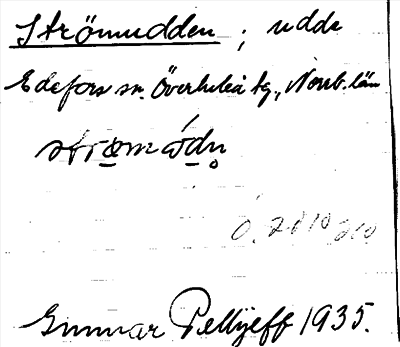 Strömudden ; udde
Edefors sn. Överluleå tg., Norrb. län
strømωdn̥
Gunnar Pellijeff 1935.